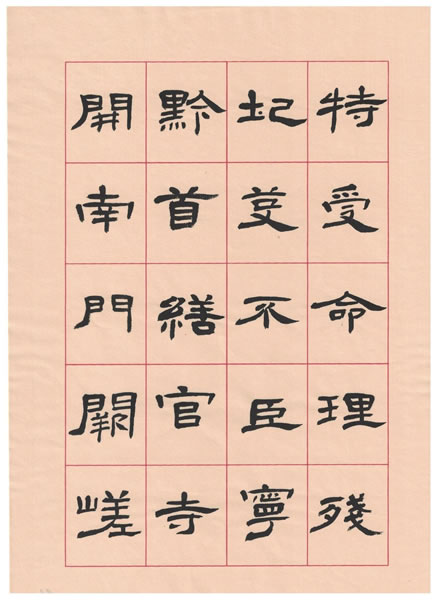 特受命理殘
圮芟不臣寧
黔首繕官寺
開南門闕嵯